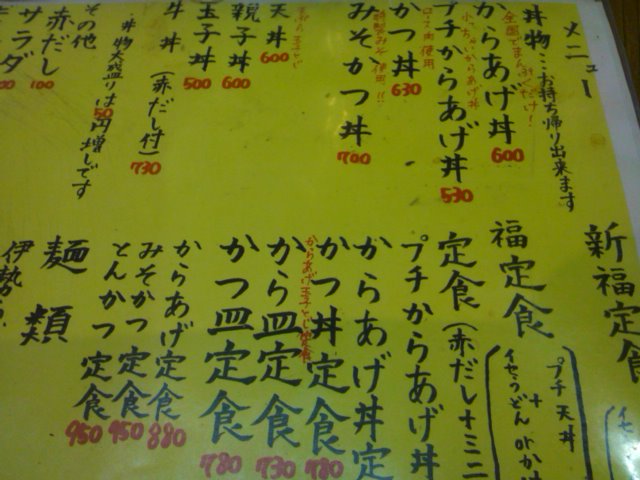 メニュー
丼物…お持ち帰り出来ます
全国でまん
からあげ丼 600
プチからあげ丼 530
ロース肉使用
かつ丼 630
みそかつ丼 700
天丼 600
親子丼 600
玉子丼 500
牛丼(赤だし付) 730
丼物大盛りは50円増しです
その他
赤だし 100
サラダ
新福定食
福定食
プチ天丼
+
イセうどん or
定食(赤だし+ミニ
プチからあげ丼
からあげ丼定
かつ丼定食 780
からあげ玉子とじ定食
から皿定食 730
かつ皿定食 780
からあげ定食 880
みそかつ定食 950
とんかつ定食 950
麺類
伊勢う